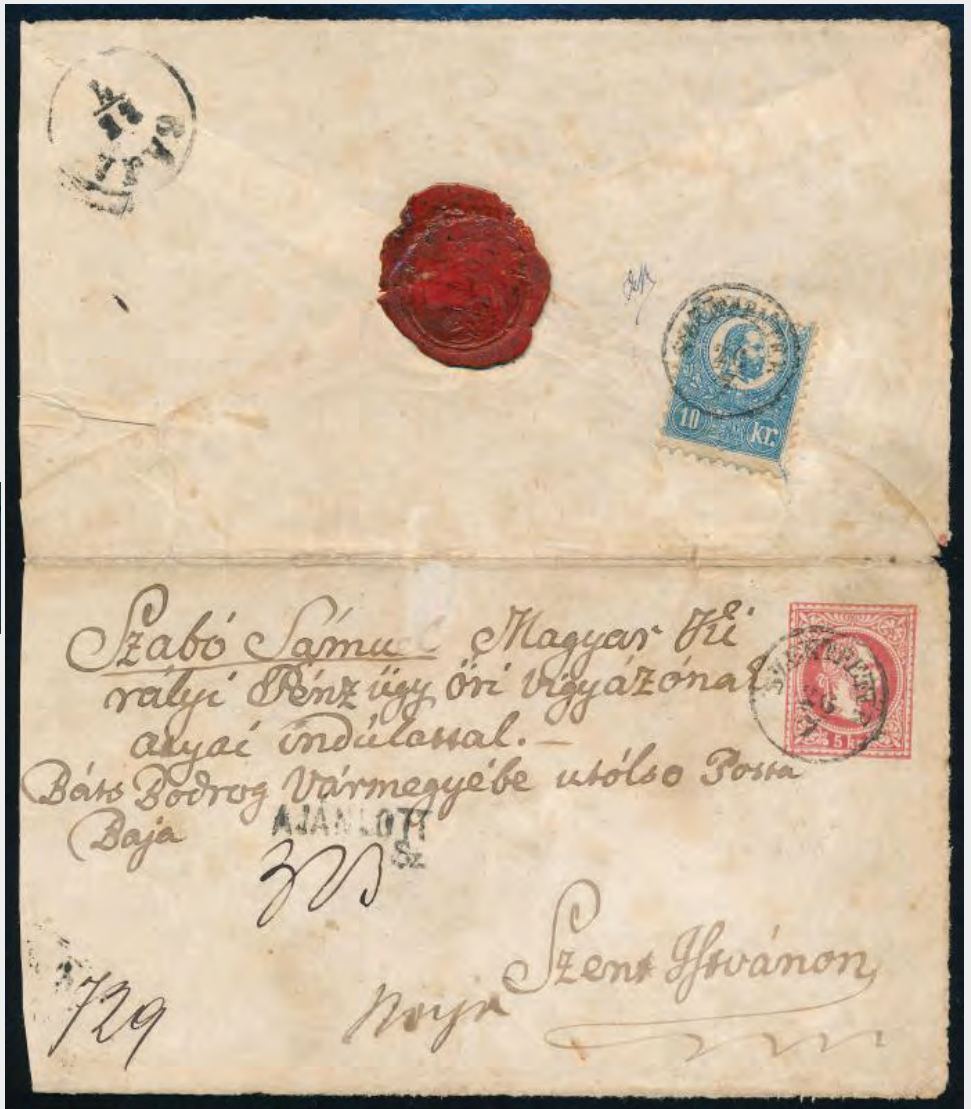 BAJA
10 kr.
Szabó Sámuel Magyar Ki
rályi Pénz ügy őri vigyázónak
atyai indúlattal.—
Báts Bodrog Vármegyébe utólso Posta
Baja
5 kr
AJÁNLOTT
Sz
Szent Istvánon
729